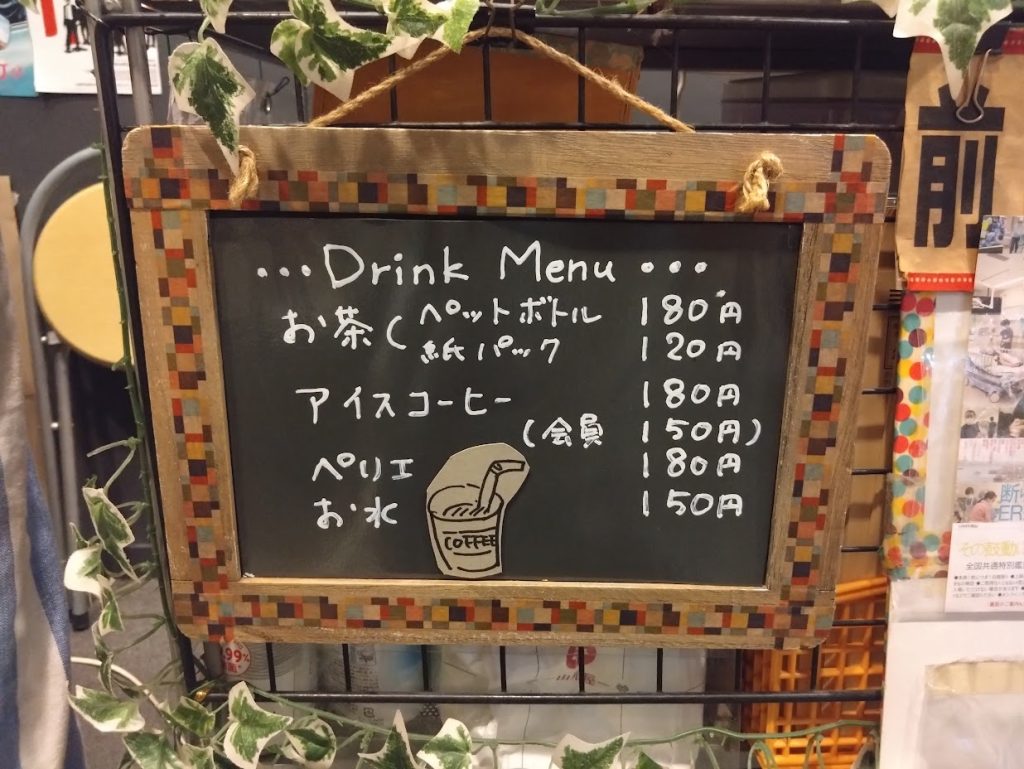 ...Drink Menu...
お茶 ( ペットボトル 180円
紙パック 120円
アイスコーヒー 180円
(会員 150円)
ペリエ 180円
お水 150円
COFFEE
前
断
ER
その鼓動に
全国共通特別鑑
99%